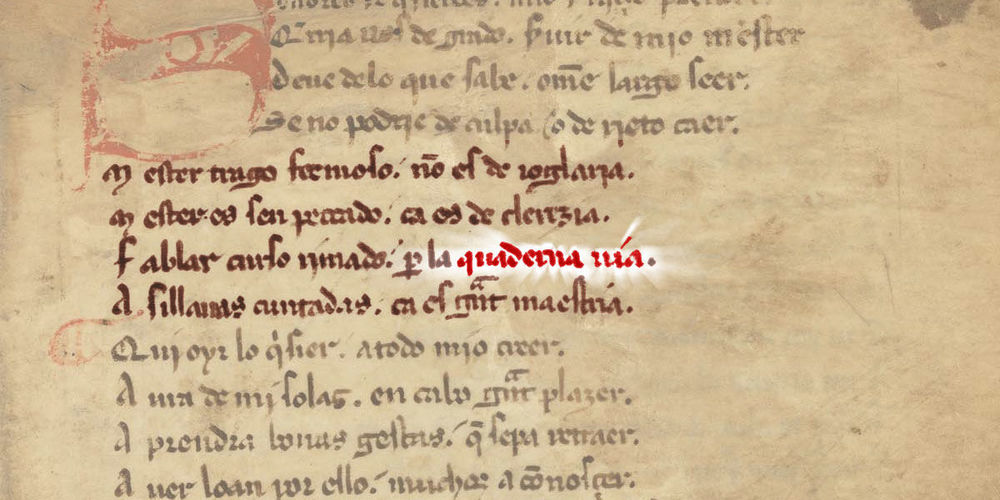 Deue delo que sabe. ome largo seer.
Se no podrie de culpa o de rieto caer.
M ester trago fermoso. nõ es de ioglaria.
M ester es sen peccado. ca es de clerezia.
F ablar curso rimado. p̲ la quaderna uia.
A sillauas cuntadas. ca es grãt maestria.
Qui oyr lo q̃sier. a todo mio creer.
A ura de mi solas. en cabo grãt plazer.
A prendra bonas gestas. q̃ sepa retraer.
A uer loan por ello. muchos a cõnosçer.